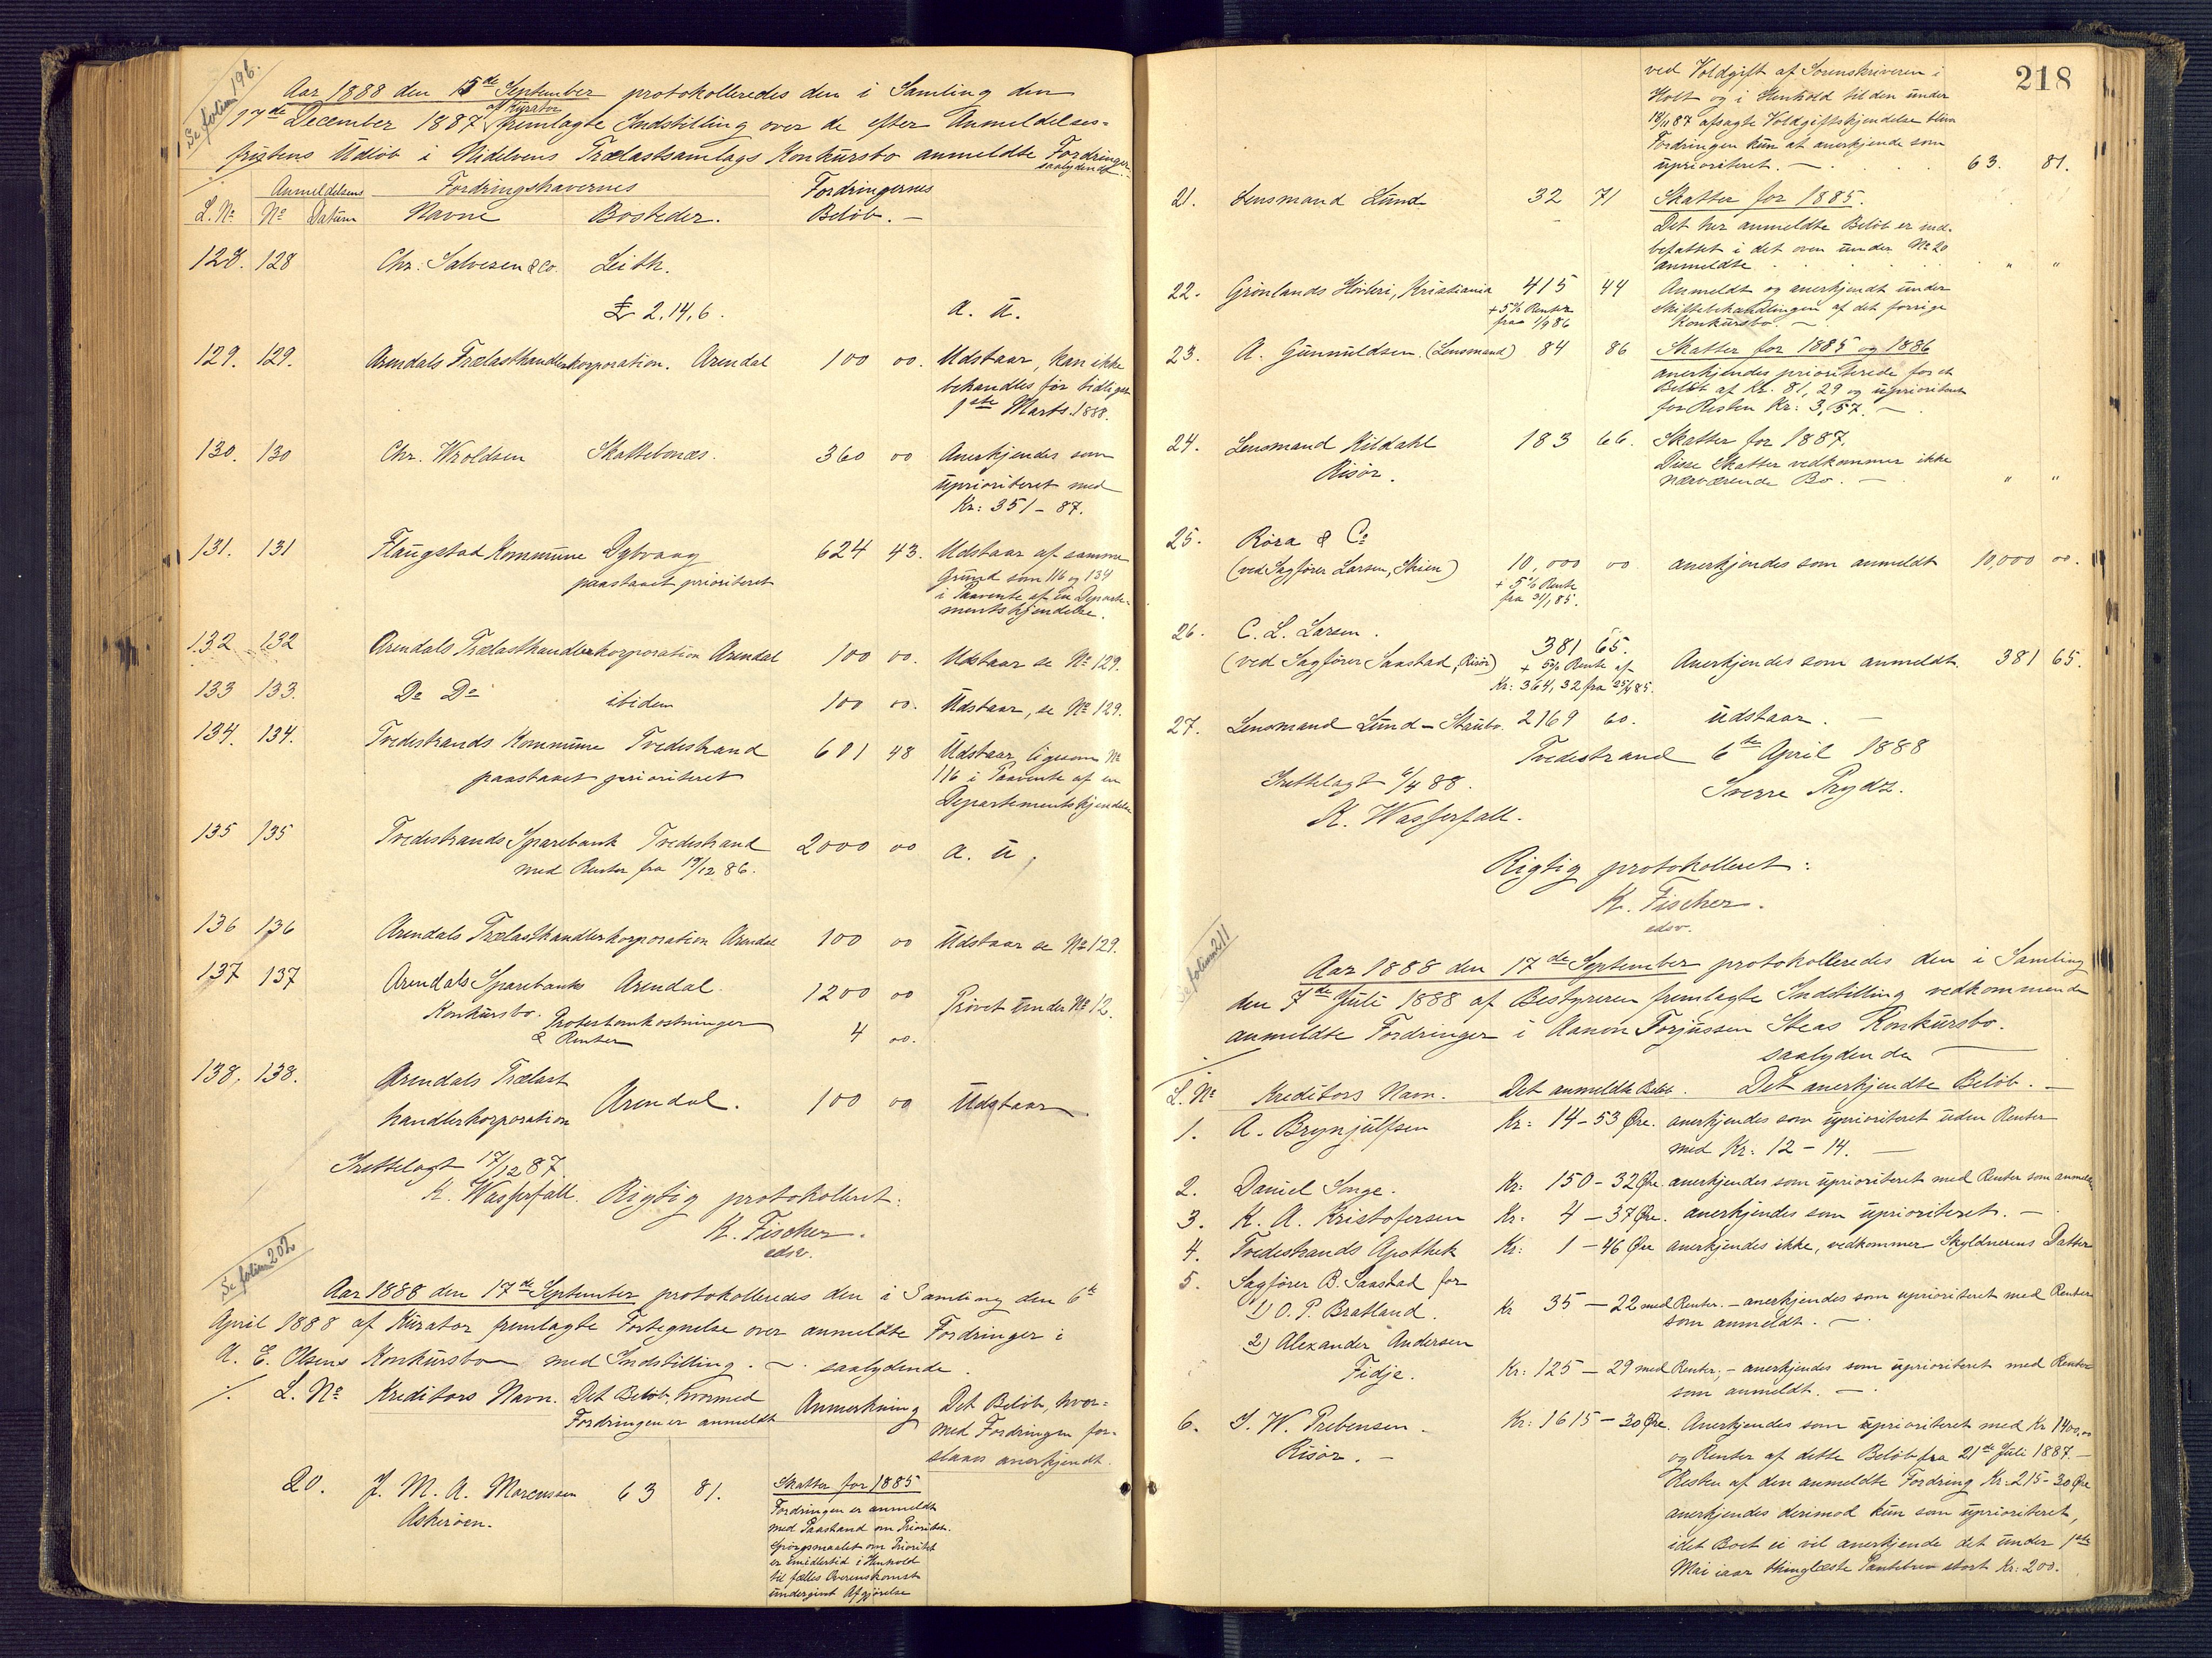 Se folium 196.
Aar 1888 den 15de September protokolleredes den i Samling den
17de December 1887 af Kurator fremlagte Indstilling over de efter Anmeldelses-
fristens Udløb i Nidelvens Trælastsamlags Konkursbo anmeldte Fordringer
saalydende:
./. Anmeldelsens Fordringshavernes Fordringernes
L. No No Datum Navne Bosteder. Beløb. —
128. 128 Chr. Salvesen & Co. Leith.
£ 2.14.6. a. u.
129. 129. Arendals Trælasthandlerkorporation. Arendal 100 00. Udstaar, kan ikke
behandles før tidligst
1ste Marts 1888.
130. 130 Chr. Wroldsen Skattebonæs. 360 00 Anerkjendes som
uprioriteret med
Kr: 351 - 87.
131. 131 Flaugstad Kommune Dybvaag 624 43. Udstaar af samme
paastaaet prioriteret Grund som 116 og 134
i Paavente af en Departe-
mentskjendelse.
132 132 Arendals Trælasthandlerkorporation Arendal 100 00. Udstaar se No 129.
133 133. Do Do ibidem 100 00. Udstaar, se No 129.
134. 134. Tvedestrands Kommune Tvedestrand 681 48 Udstaar ligesom No
paastaaet prioriteret 116 i Paavente af en
Departementskjendelse
135 135 Tvedestrands Sparebank Tvedestrand 2000 00 a. u.
med Renter fra 19/12 86.
136 136 Arendals Trælasthandlerkorporation Arendal 100 00 Udstaar se No 129.
137 137 Arendals Sparebanks Arendal. 1200 00 Prøvet under No 12.
Konkursbo. Protestomkostninger
& Renter 4 00.
138. 138. Arendals Trælast
handlerkorporation Arendal. 100 00 Udstaar.
Irettelagt 17/12 87.
K. Wasserfall. Rigtig protokolleret:
K. Fischer.
edsv.
Se folium 202
Aar 1888 den 17de September protokolleredes den i Samling den 6te
April 1888 af Kurator fremlagte Fortegnelse over anmeldte Fordringer i
A. E. Olsens Konkursbo med Indstilling. — saalydende
./. L. No Kreditors Navn. Det Beløb, hvormed Anmerkning Det Beløb, hvor-
Fordringen er anmeldt med Fordringen for-
slaaes anerkjendt.
20. J. M. A. Marcussen 63 81. Skatter for 1885
Askerøen. Fordringen er anmeldt
med Paastand om Prioritet.
Spørgsmaalet om Prioritet
er imidlertid i Henhold
til fælles Overenskomst
undergivet Afgjørelse
218
ved Voldgift af Sorenskriveren i
Holt og i Henhold til den under
18/11 87 afsagte Voldgiftskjendelse bliver
Fordringen kun at anerkjende som
uprioriteret. — 63. 81.
21. Lensmand Lund 32 71 Skatter for 1885.
Det her anmeldte Beløb er ind-
befattet i det oven under No 20
anmeldte " "
22. Grønlands Høvleri, Kristiania 415 44 Anmeldt og anerkjendt under
+ 5% Renter Skiftebehandlingen af det forrige
fra 1/9 86 Konkursbo. —
23. A. Gunnuldsen. (Lensmand) 84 86 Skatter for 1885 og 1886
anerkjendes prioriterede for et
Beløb af Kr. 81,29 og uprioriteret
for Resten Kr: 3,57. —
24. Lensmand Kildahl 183 66. Skatter for 1887.
Risør. Disse Skatter vedkommer ikke
nærværende Bo. — " "
25. Rora & Co
(ved Sagfører Larsen, Skien) 10,000 00 anerkjendes som anmeldt 10,000 00.
+ 5% Rente
fra 31/1 85.
26. C. L. Larsen. 381 65.
(ved Sagfører Saastad, Risør) + 5% Rente af Anerkjendes som anmeldt. 381 65.
Kr: 364,32 fra 25/4 85.
27. Lensmand Lund - Staubo. 2169 60. udstaar. —
Tvedestrand 6te April 1888
Irettelagt 6/4 88. Sverre Prydz.
K. Wasserfall.
Rigtig protokolleret:
K. Fischer.
edsv.
Se folium 211
Aar 1888 den 17de September protokolleredes den i Samling
den 7de Juli 1888 af Bestyreren fremlagte Indstilling vedkommende
anmeldte Fordringer i Aanon Torjussen Steas Konkursbo.
saalydende
./.
L. No Kreditors Navn. Det anmeldte Beløb. Det anerkjendte Beløb. —
1. A. Brynjulfsen Kr: 14 - 53 Øre. anerkjendes som uprioriteret uden Renter
med Kr: 12 - 14. —
2. Daniel Songe. Kr: 150 - 32 Øre. anerkjendes som uprioriteret med Renter som anmeldt
3. K. A. Kristofersen Kr: 4 - 37 Øre. anerkjendes som uprioriteret. —
4. Tvedestrands Apothek Kr: 1 - 46 Øre anerkjendes ikke, vedkommer Skyldnerens Datter
5. Sagfører B. Saastad for
1) O. P. Bratland. Kr 35 - 22 med Renter. - anerkjendes som uprioriteret med Renter
som anmeldt. —
2) Alexander Andersen
Fidje. Kr: 125 - 29 med Renter; - anerkjendes som uprioriteret med Renter
som anmeldt. —
6. I. W. Prebensen. Kr: 1615 - 30 Øre. Anerkjendes som uprioriteret med Kr 1400,00
Risør. — og Renter af dette Beløb fra 21de Juli 1887. —
Resten af den anmeldte Fordring Kr: 215 - 30 Øre
anerkjendes derimod kun som uprioriteret,
idet Boet ei vil anerkjende det under 1ste
Mai iaar thinglæste Pantebrev stort Kr: 200.